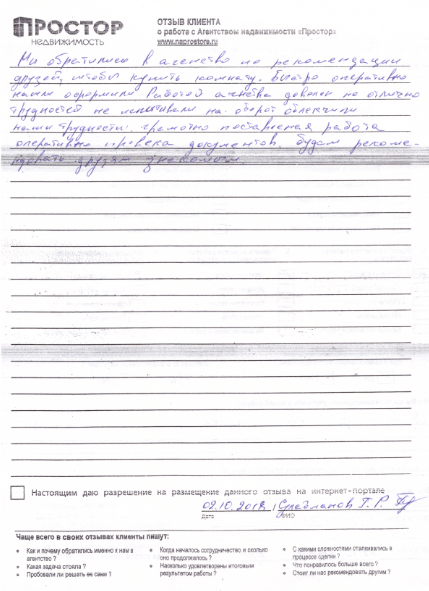 ПРОСТОР
НЕДВИЖИМОСТЬ
ОТЗЫВ КЛИЕНТА
о работе с Агентством недвижимости «Простор»
www.naprostore.ru
Мы обратились в агенство по рекомендации
друзей, чтобы купить комнату. Быстро оперативно
нашли оформили Работой агенства довольны на отлично
трудностей не испытывали на оборот облегчили
наши трудности. грамотно поставленая работа
оперативно проверка документов, будем рекоме-
ндовать друзьям знакомым.
Настоящим даю разрешение на размещение данного отзыва на интернет-портале
09.10.2018 Г. Р.
Дата ФИО
Чаще всего в своих отзывах клиенты пишут:
Как и почему обратились именно к нам в агентство ?
Какая задача стояла ?
Пробовали ли решить ее сами ?
Когда началось сотрудничество и сколько оно продолжалось ?
Насколько удовлетворены итоговым результатом работы ?
С какими сложностями сталкивались в процессе сделки ?
Что понравилось больше всего ?
Стоит ли нас рекомендовать другим ?